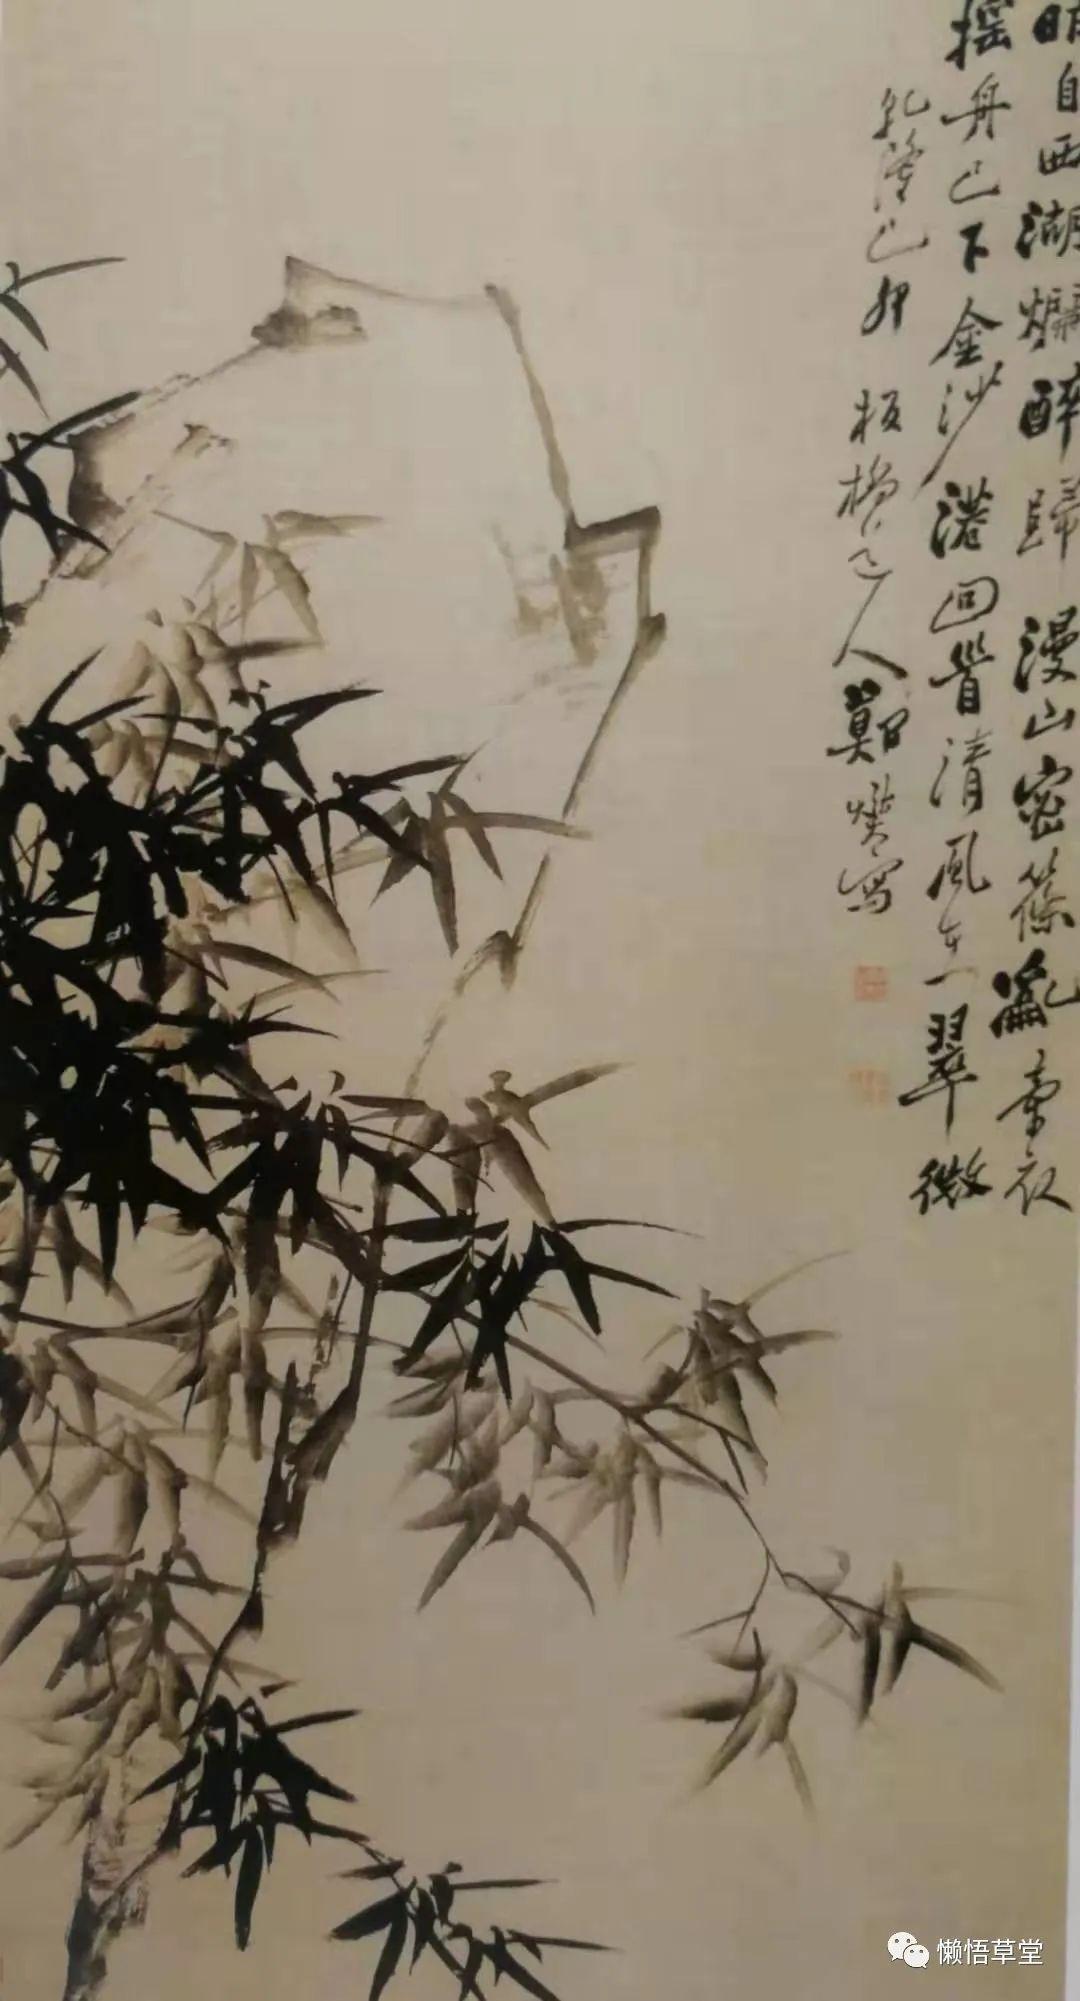 昨自西湖爛醉歸漫山密篠亂牽衣
搖舟已下金沙港回首清風在翠微
乾隆己卯 板橋道人鄭燮寫
懒悟草堂